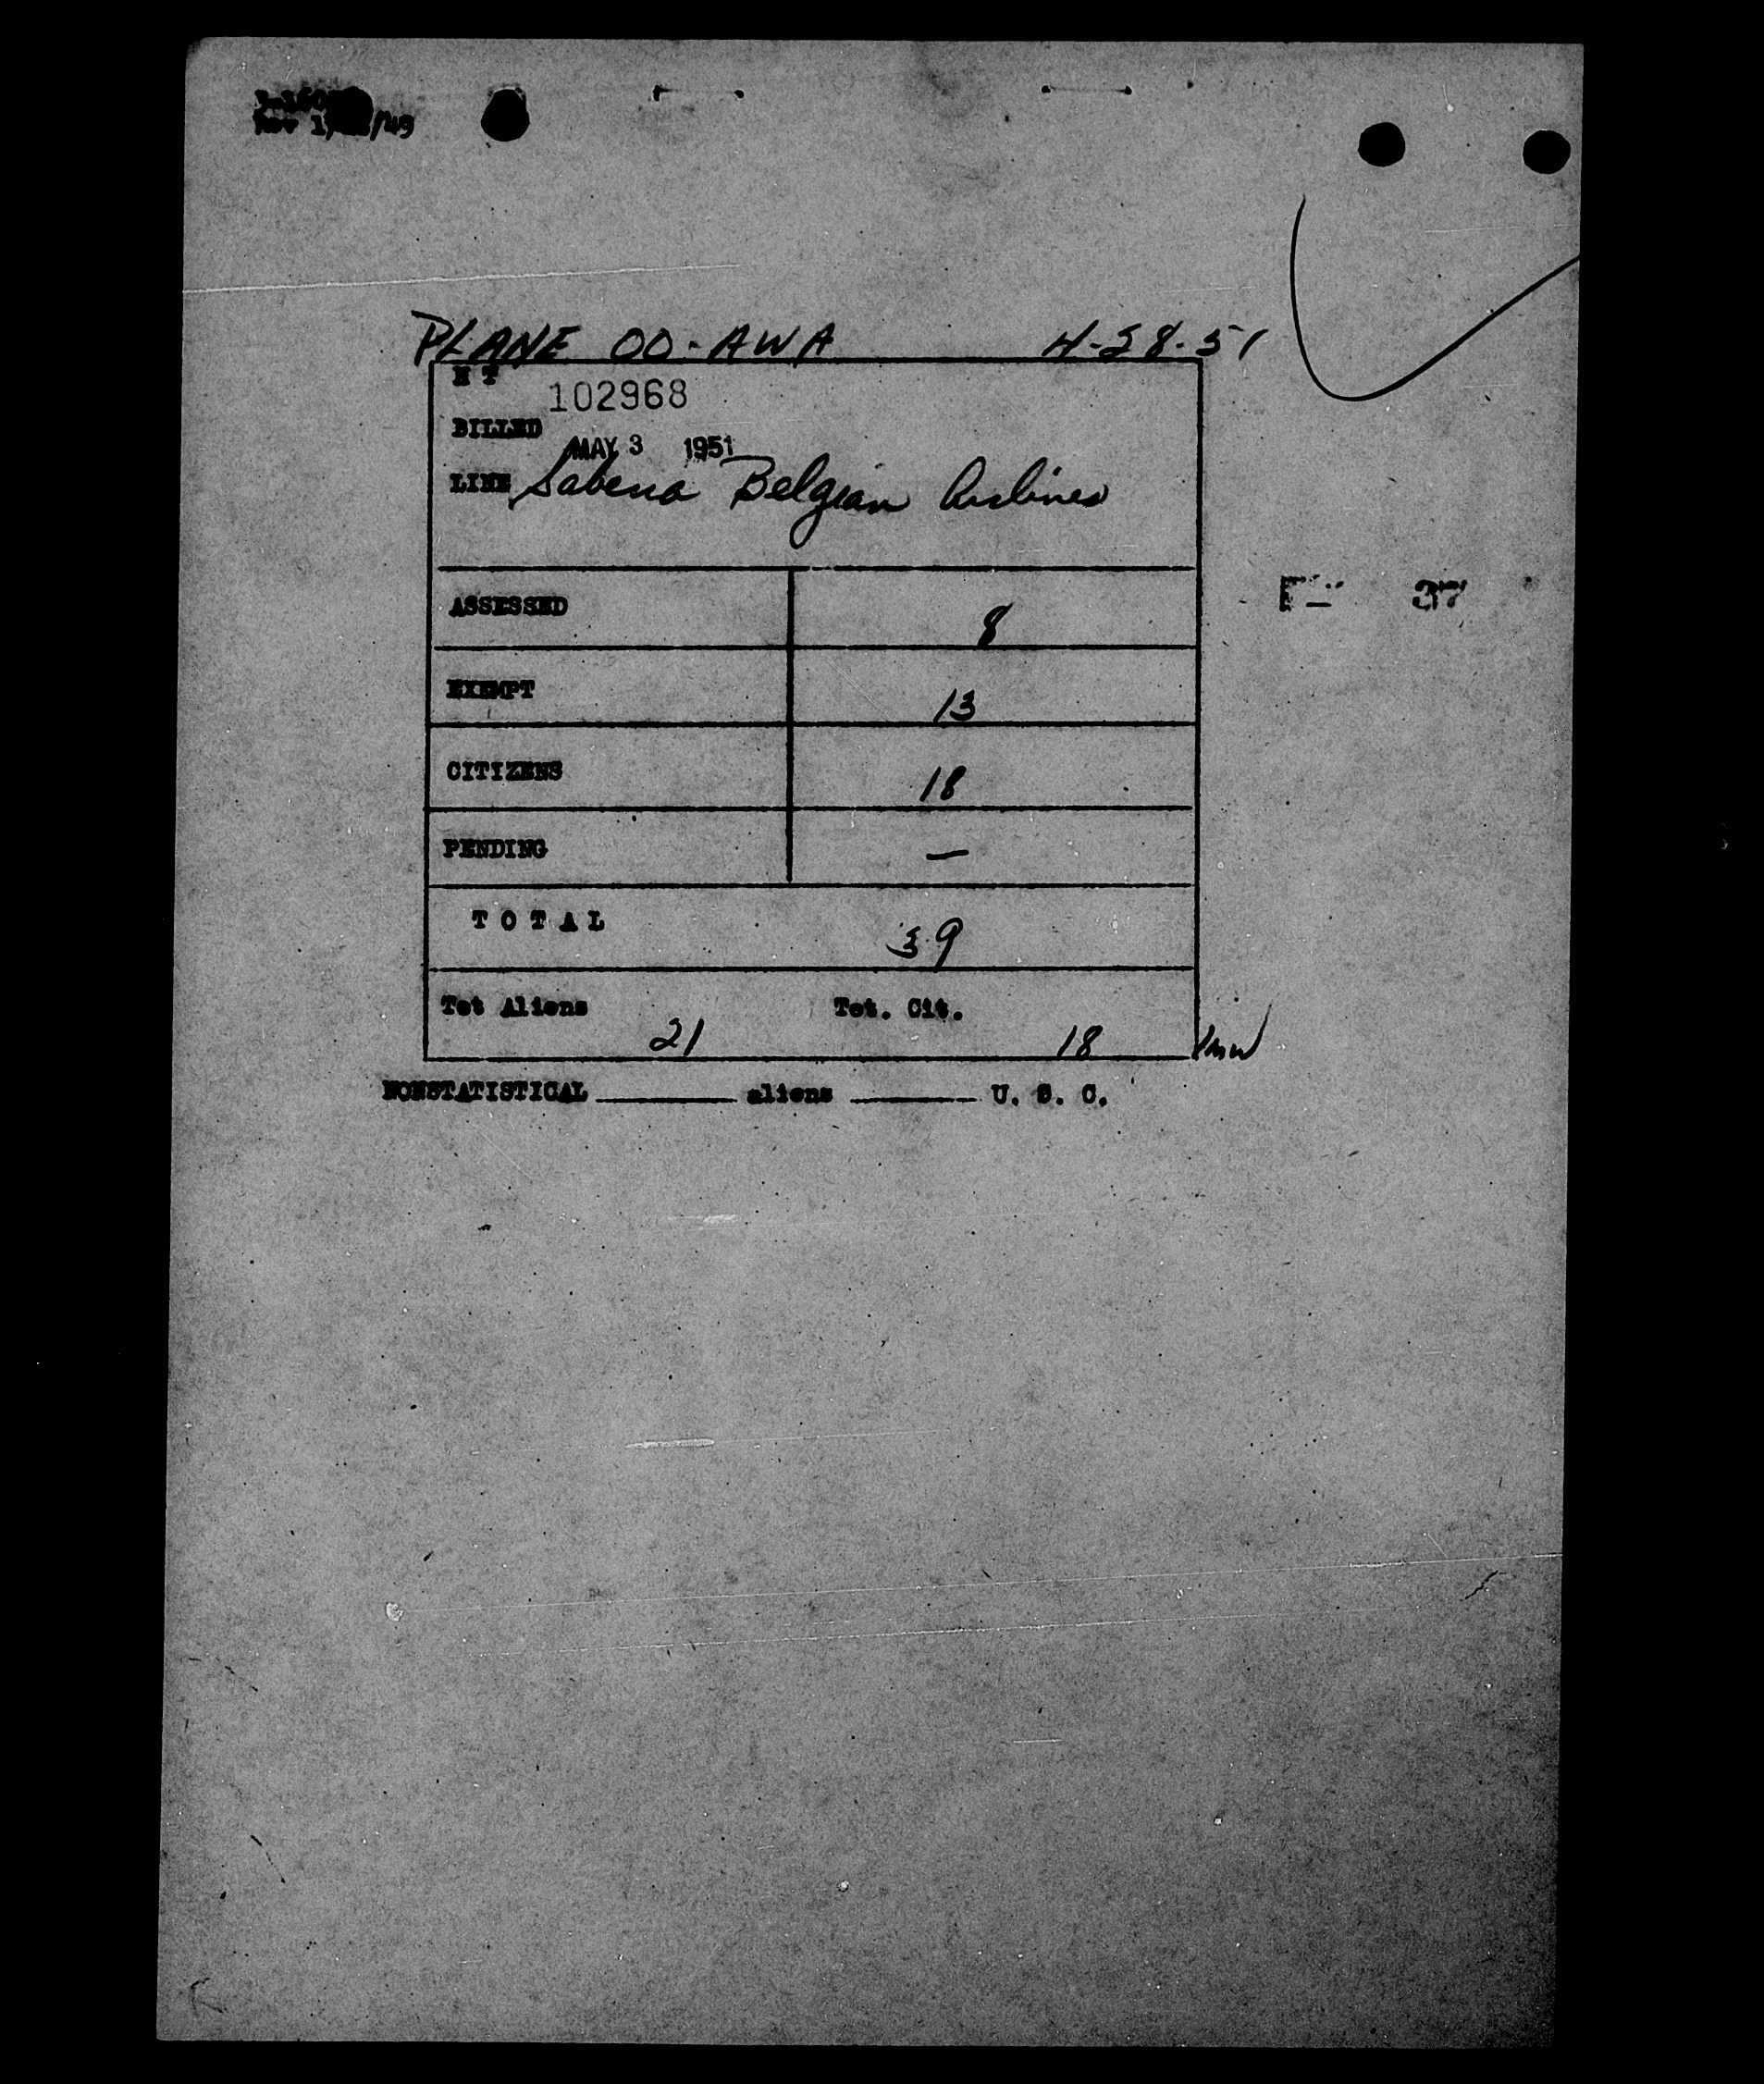 /49
PLANE OO-AWA 4-28-51
H T 102968
BILLED MAY 3 1951
LINE Sabena Belgian Airlines
ASSESSED 8
37
EXEMPT 13
CITIZENS 18
PENDING —
TOTAL 39
Tot Aliens 21 Tot. Cit. 18
NONSTATISTICAL ______ aliens ______ U. S. C.